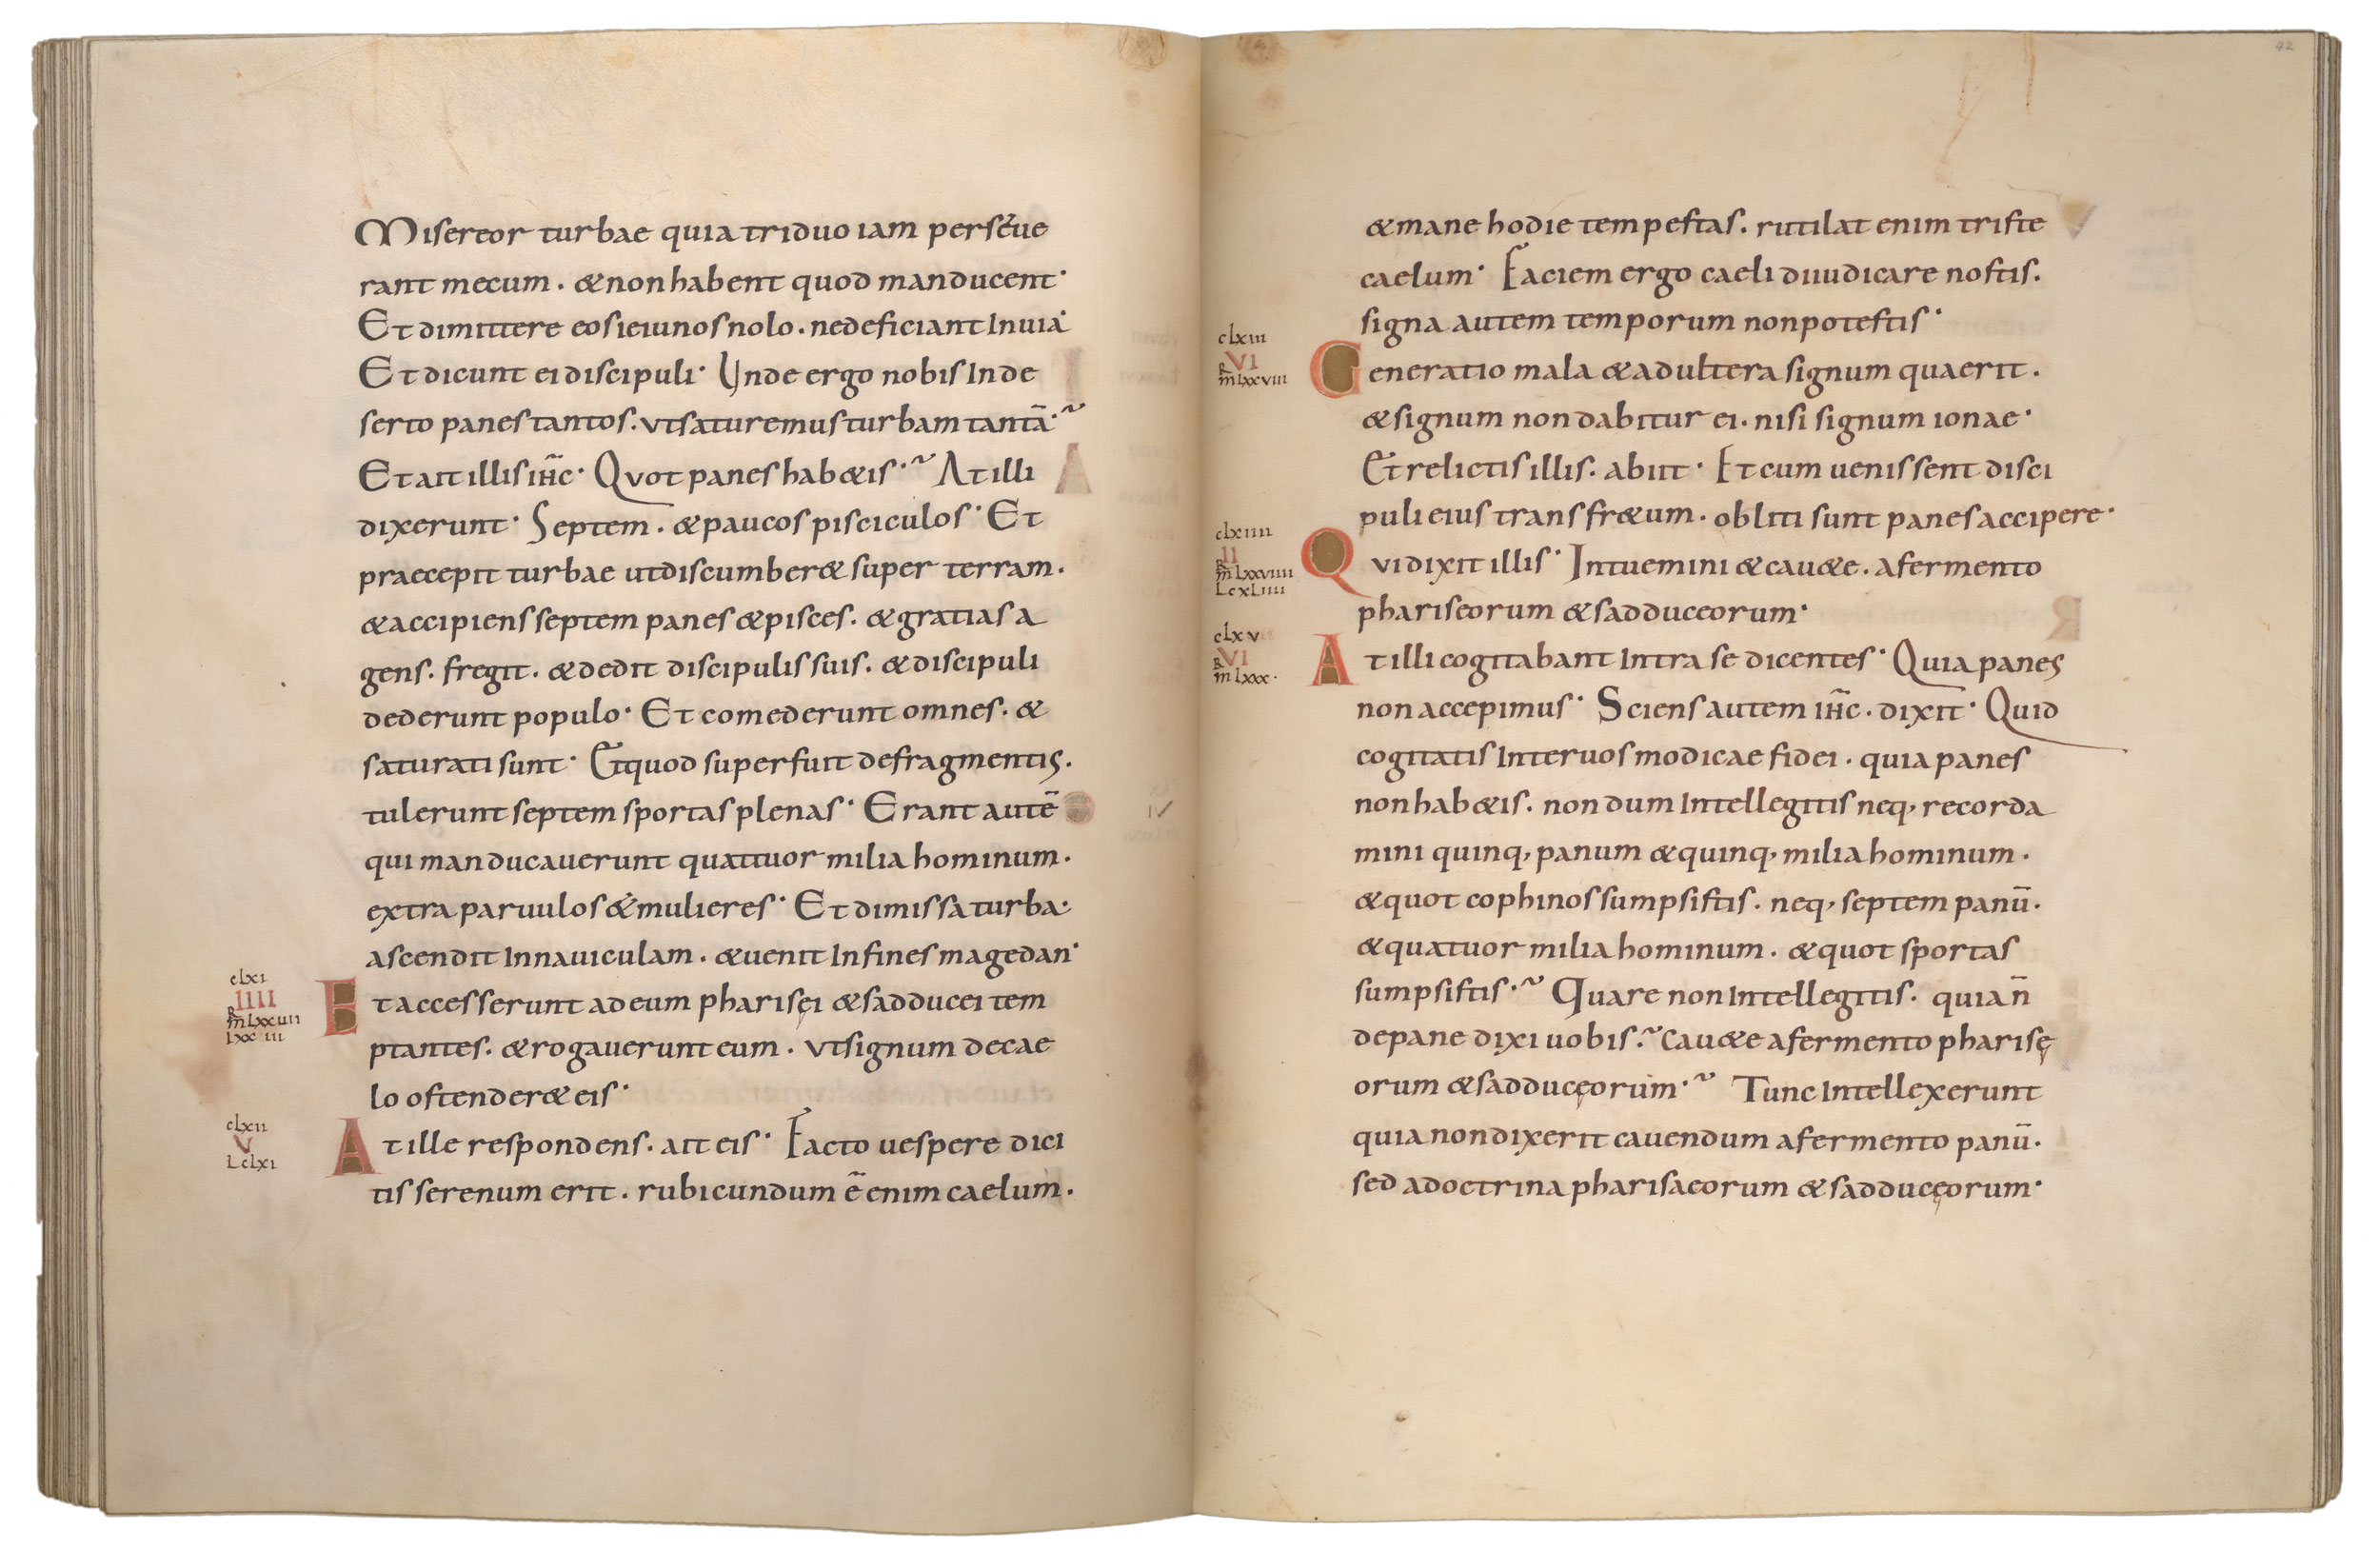 Misereor turbae quia triduo iam perseue
rant mecum. & non habent quod manducent·
Et dimittere eos ieiunos nolo. ne deficiant In uia·
Et dicunt ei discipuli· Unde ergo nobis In de
serto panes tantos. vt saturemus turbam tantā·
Et ait illis ih̅c· Quot panes hab&is· At illi
dixerunt· Septem. & paucos pisciculos· Et
praecepit turbae ut discumber& super terram.
& accipiens septem panes & pisces. & gratias a
gens. fregit. & dedit discipulis suis. & discipuli
dederunt populo· Et comederunt omnes. &
saturati sunt· Et quod superfuit de fragmentis.
tulerunt septem sportas plenas· Erant autē
qui manducauerunt quattuor milia hominum.
extra paruulos & mulieres· Et dimissa turba·
ascendit In nauiculam. & uenit In fines magedan·
clxi
IIII
R
m̅ lxxuii
lxxiii
Et accesserunt ad eum pharisęi & sadducei tem
ptantes. & rogauerunt eum. vt signum de cae
lo ostender& eis·
clxii
V
L clxi
At ille respondens. ait eis· Facto uespere dici
tis serenum erit. rubicundum ē enim caelum.
42
& mane hodie tempestas. rutilat enim triste
caelum· Faciem ergo caeli diiudicare nostis.
signa autem temporum non potestis·
clxiii
VI
R
m̅ lxxviii
Generatio mala & adultera signum quaerit.
& signum non dabitur ei. nisi signum ionae·
Et relictis illis. abiit· Et cum uenissent disci
puli eius trans fr&um. obliti sunt panes accipere·
clxiiii
II
R
m̅ lxxviiii
L cxLiiii
Qui dixit illis· Intuemini & cau&e. a fermento
phariseorum & sadduceorum·
clxv
VI
R
m̅ lxxx·
At illi cogitabant Intra se dicentes· Quia panes
non accepimus· Sciens autem ih̅c. dixit· Quid
cogitatis Inter uos modicae fidei. quia panes
non hab&is. non dum Intellegitis neq, recorda
mini quinq, panum & quinq, milia hominum.
& quot cophinos sumpsistis. neq, septem panū.
& quatuor milia hominum. & quot sportas
sumpsistis· Quare non Intellegitis. quia n̅
de pane dixi uobis. Cau&e a fermento pharisę
orum & sadducęorum· Tunc Intellexerunt
quia non dixerit cauendum a fermento panū.
sed a doctrina pharisaeorum & sadducęorum·